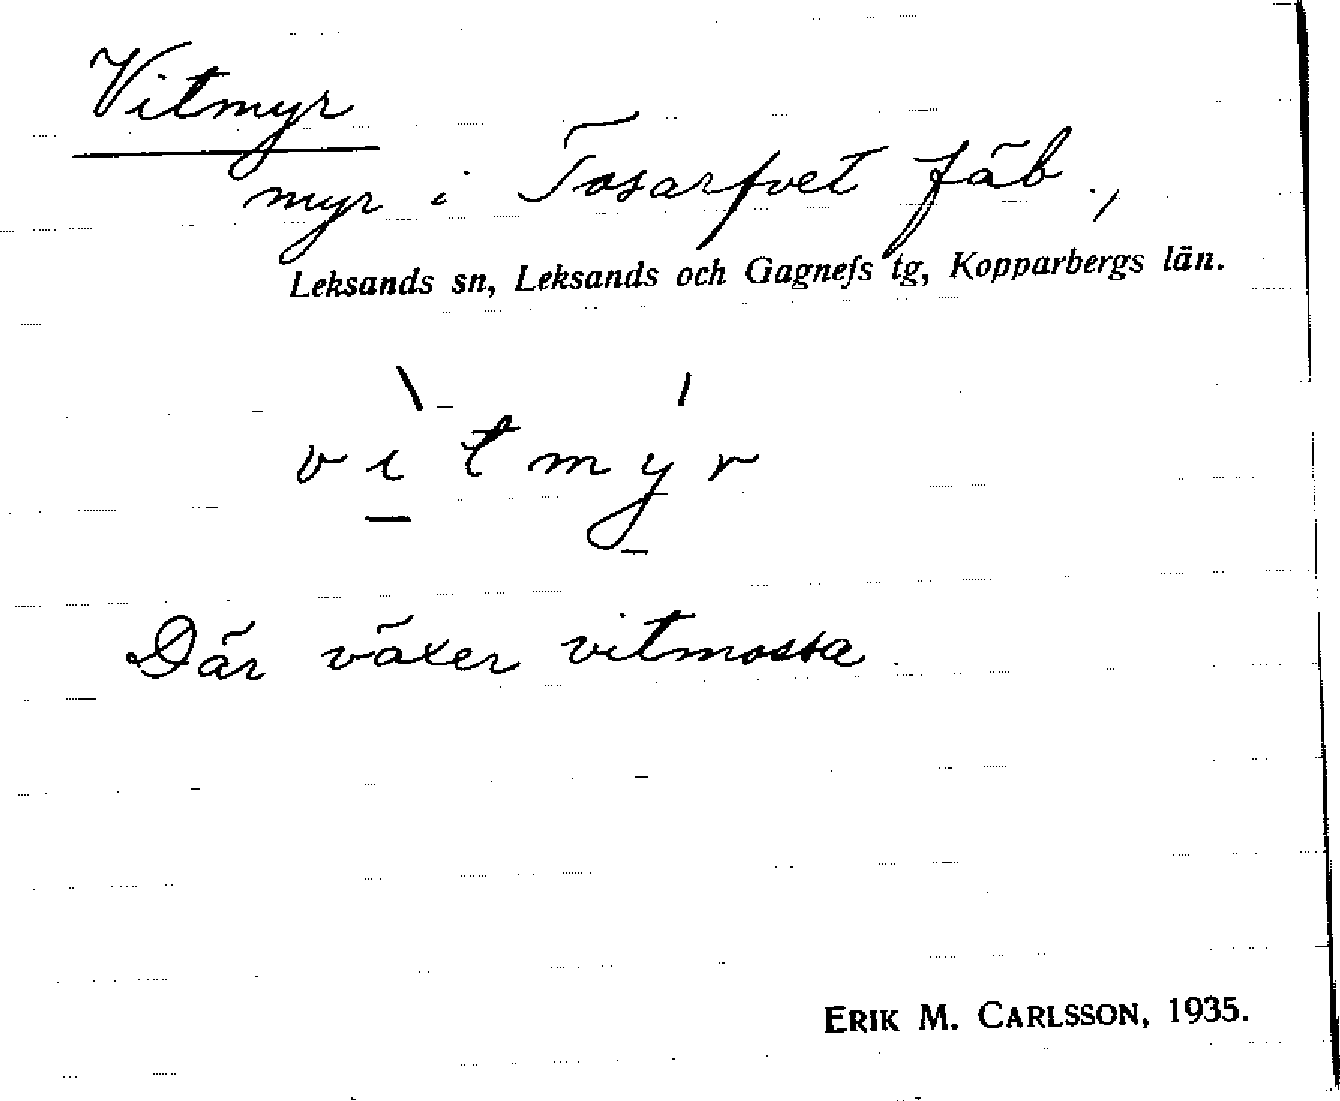 Vitmyr
myr i Tosarfvet fäb.,
Leksands sn, Leksands och Gagnefs tg, Kopparbergs län.
v ì t m ý r
Där växer vitmossa
ERIK M. CARLSSON, 1935.